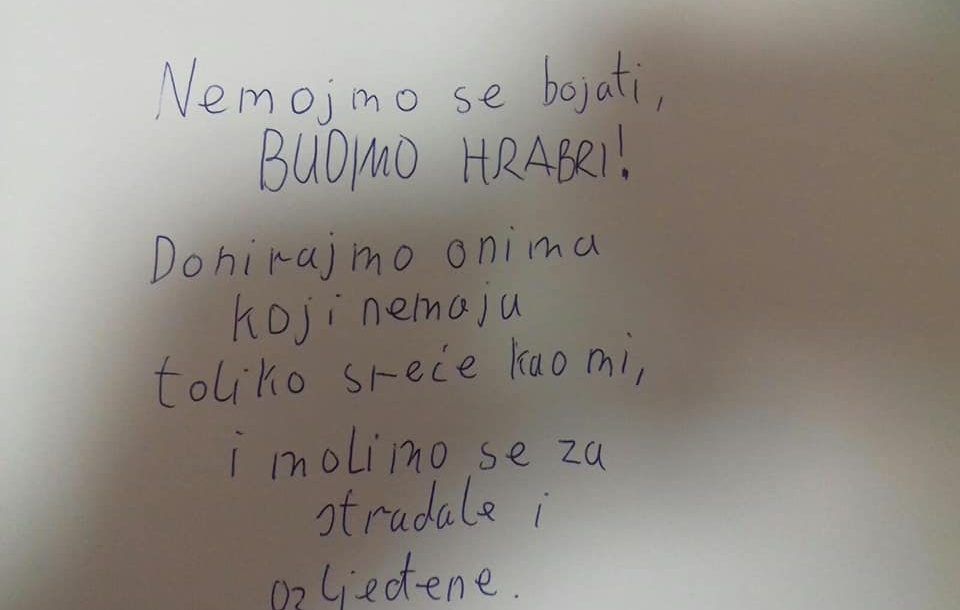 Nemojmo se bojati,
BUDIMO HRABRI!
Donirajmo onima
koji nemaju
toliko sreće kao mi,
i molimo se za
stradale i
ozljeđene.